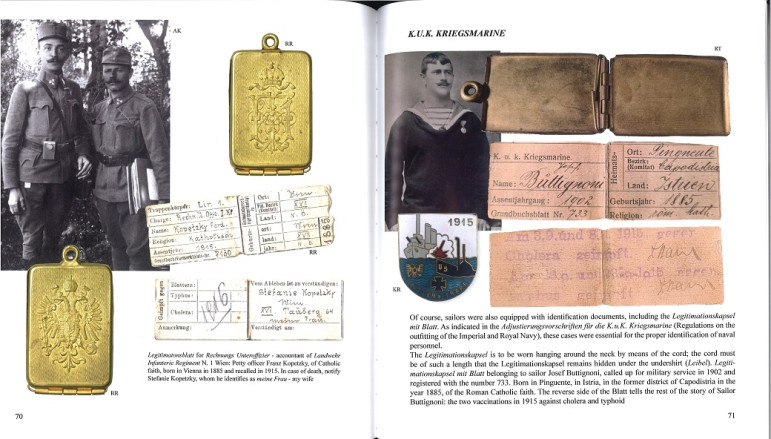 AK
RR
Truppenkörper: Lin 1.
Charge:
Name: Kopetzky Ferd.
Religion: Katholisch
Assentjahr: 1915.
Ort: Wien
XVI
Land: N. Ö.
Ort: Wien
land: XVI
Jahr: N. Ö.
1885
RR
Geimpft gegen
Blattern:
Typhus:
Cholera: 1916
Anmerkung:
Vom Ableben ist zu verständigen:
Stefanie Kopetzky
Wien.
XVI
meine Frau.
Verständigt am:
RR
Legitimationsblatt for Rechnungs Unteroffizier - accountant of Landwehr
Infanterie Regiment N. 1 Wien: Petty officer Franz Kopetzky, of Catholic
faith, born in Vienna in 1885 and recalled in 1915. In case of death, notify
Stefanie Kopetzky, whom he identifies as meine Frau - my wife
70
K.U.K. KRIEGSMARINE
RT
K. u. k. Kriegsmarine.
Name: Büttignoni
Assentjahrgang: 1902
Grundbuchsblatt Nr. 733
Heimats-
Ort: Pinguente
Bezirk: (Komitat) Capodistria
Land: Istrien
Geburtsjahr: 1885
Religion: röm. kath.
Cholera geimpft.
1915
KR
RR
Of course, sailors were also equipped with identification documents, including the Legitimationskapsel
mit Blatt. As indicated in the Adjustierungsvorschriften für die K.u.K. Kriegsmarine (Regulations on the
outfitting of the Imperial and Royal Navy), these cases were essential for the proper identification of naval
personnel.
The Legitimationskapsel is to be worn hanging around the neck by means of the cord; the cord must
be of such a length that the Legitimationskapsel remains hidden under the undershirt (Leibel). Legiti-
mationskapsel mit Blatt belonging to sailor Josef Buttignoni, called up for military service in 1902 and
registered with the number 733. Born in Pinguente, in Istria, in the former district of Capodistria in the
year 1885, of the Roman Catholic faith. The reverse side of the Blatt tells the rest of the story of Sailor
Buttignoni: the two vaccinations in 1915 against cholera and typhoid
71